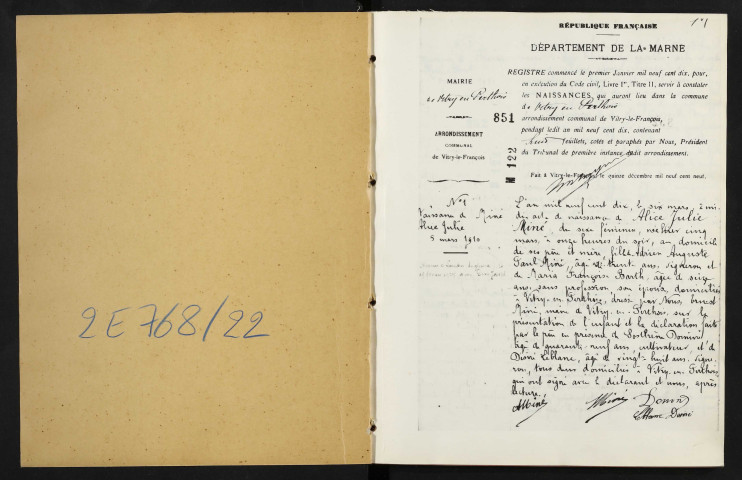 2E768/22
RÉPUBLIQUE FRANÇAISE
DÉPARTEMENT DE LA MARNE
MAIRIE
de Vitry en Perthois
ARRONDISSEMENT
COMMUNAL
de Vitry-le-François
851
№ 122
REGISTRE commencé le premier Janvier mil neuf cent dix, pour,
en exécution du Code civil, Livre Ier, Titre II, servir à constater
les NAISSANCES, qui auront lieu dans la commune
de Vitry en Perthois
arrondissement communal de Vitry-le-François,
pendant ledit an mil neuf cent dix, contenant
feuillets, cotés et paraphés par Nous, Président
du Tribunal de première instance dudit arrondissement.
Fait à Vitry-le-François, le quinze décembre mil neuf cent neuf.
No 1
Naissance de Miné
Alice Julie
5 mars 1910
L'an mil neuf cent dix, le six mars, à mi-
di, acte de naissance de Alice Julie
Miné, du sexe féminin, née hier cinq
mars, à onze heures du soir, au domicile
de ses père et mère, fille Adrien Auguste
Paul Miné, âgé de trente ans, vigneron et
de Maria François Barth, âgée de seize
ans, sans profession, son épouse, domiciliés
à Vitry-en-Perthois, dressé par Nous, Ernest
Miné, maire de Vitry-en-Perthois, sur la
présentation de l'enfant et la déclaration faite
par le père en présence de Sosthène Domine
âgé de quarante-neuf ans, cultivateur et de
Désiré Leblanc, âgé de vingt-huit ans, vigne-
ron, tous deux domiciliés à Vitry-en-Perthois
qui ont signé avec le déclarant et nous, après
lecture.
AMiné Miné Domine
Leblanc Désiré